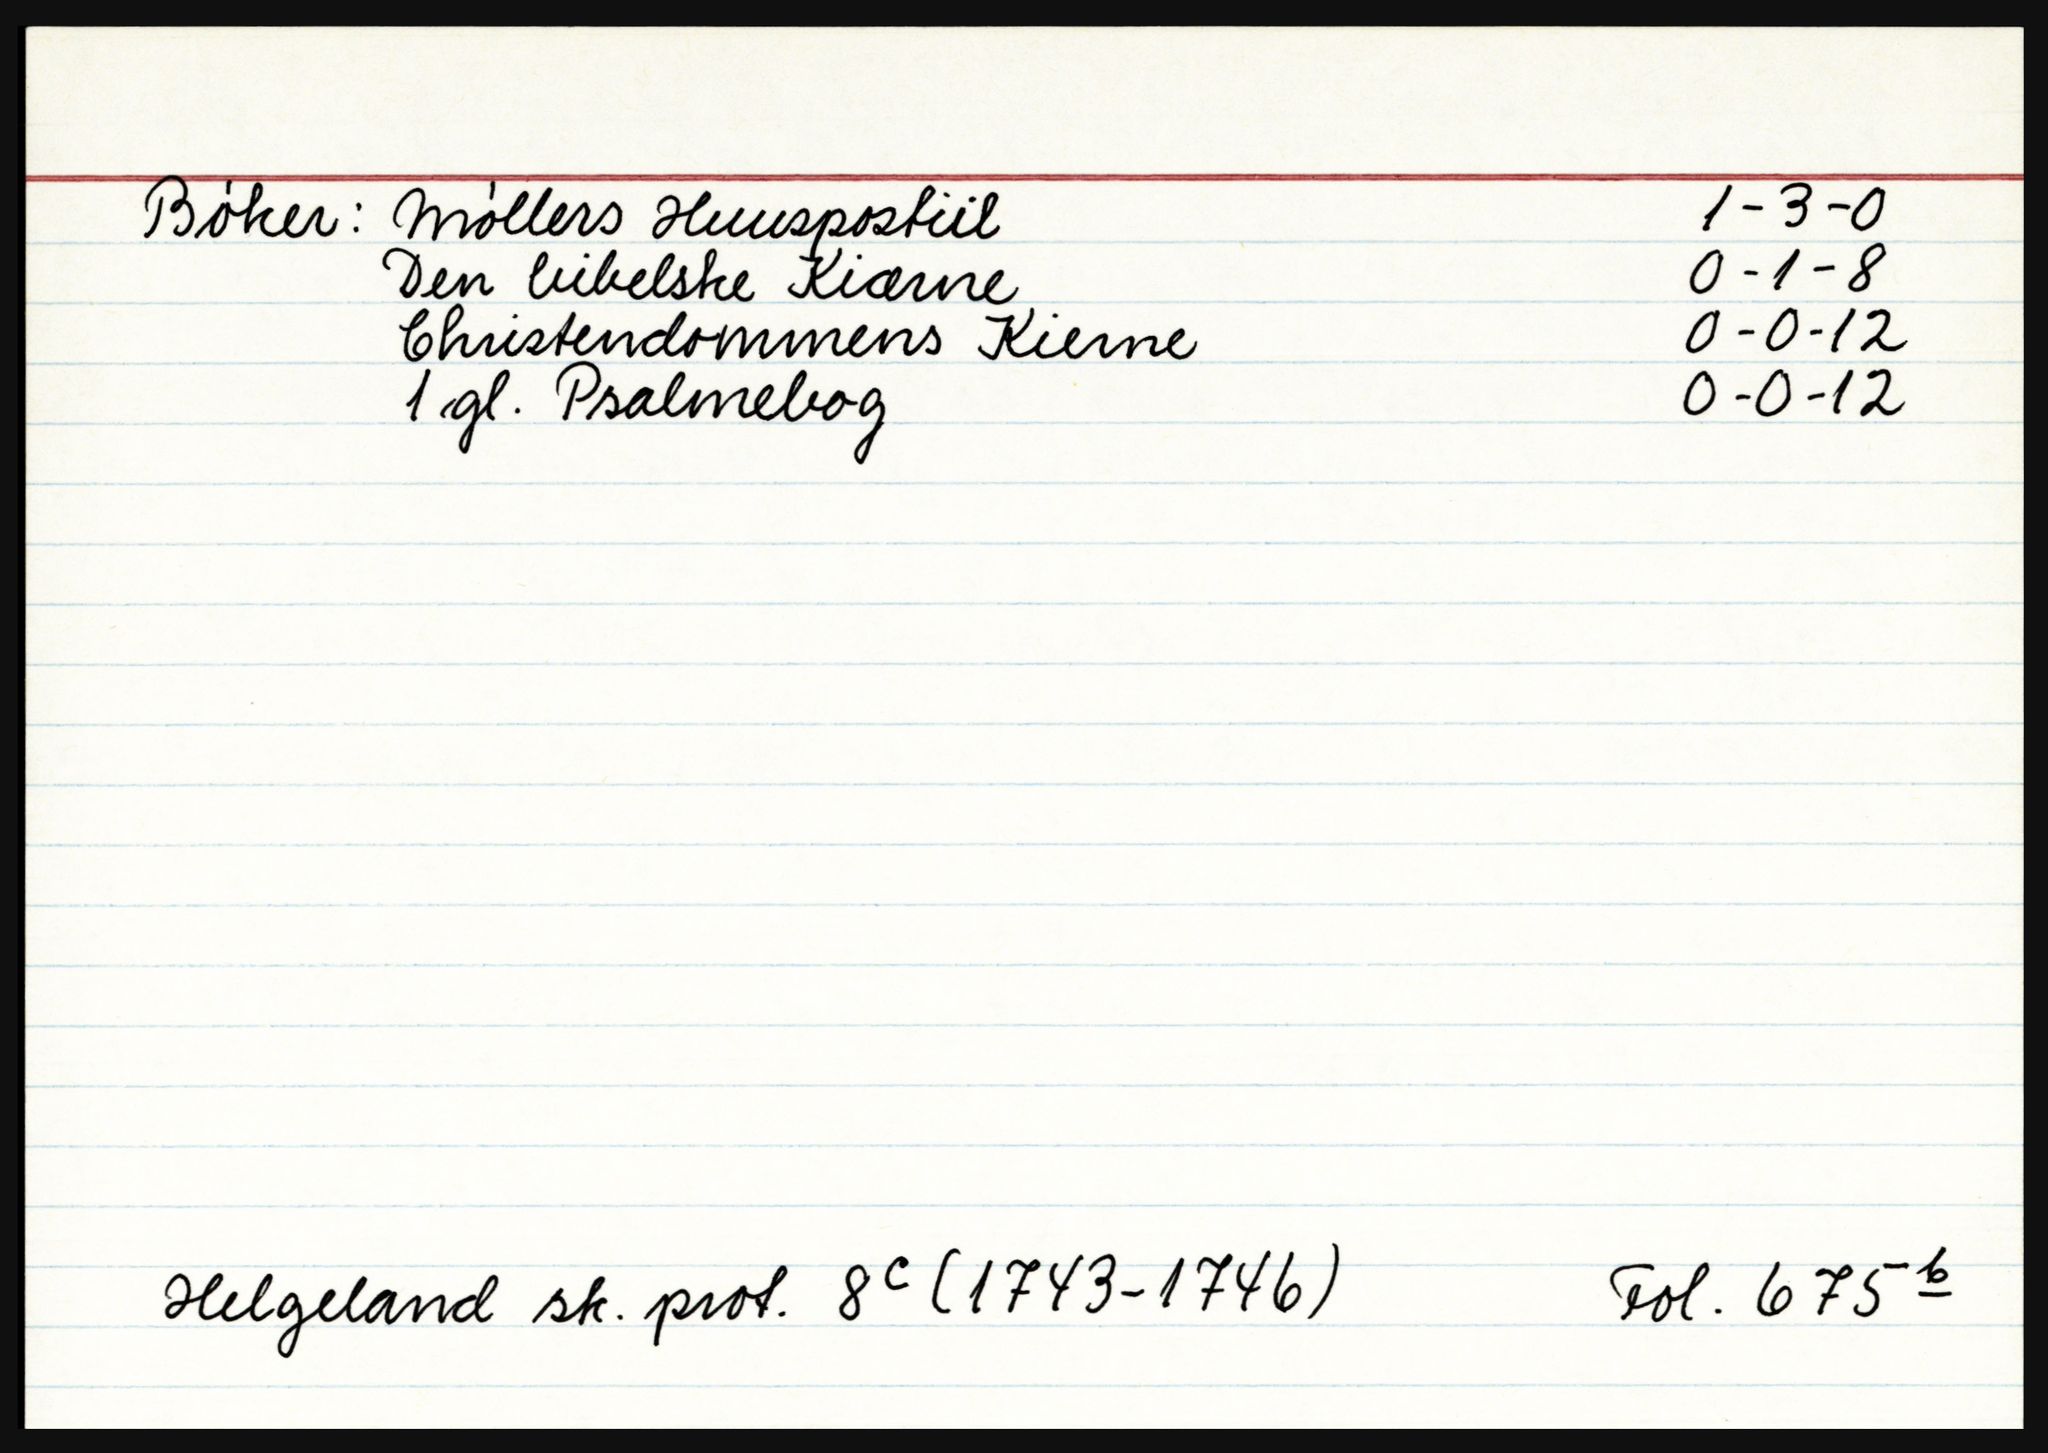 Bøker: Møllers Huuspostiil 1-3-0
Den bibelske Kiærne 0-1-8
Christendommens Kierne 0-0-12
1 gl. Psalmebog 0-0-12
Helgeland sk. prot. 8c (1743-1746) Fol. 675b